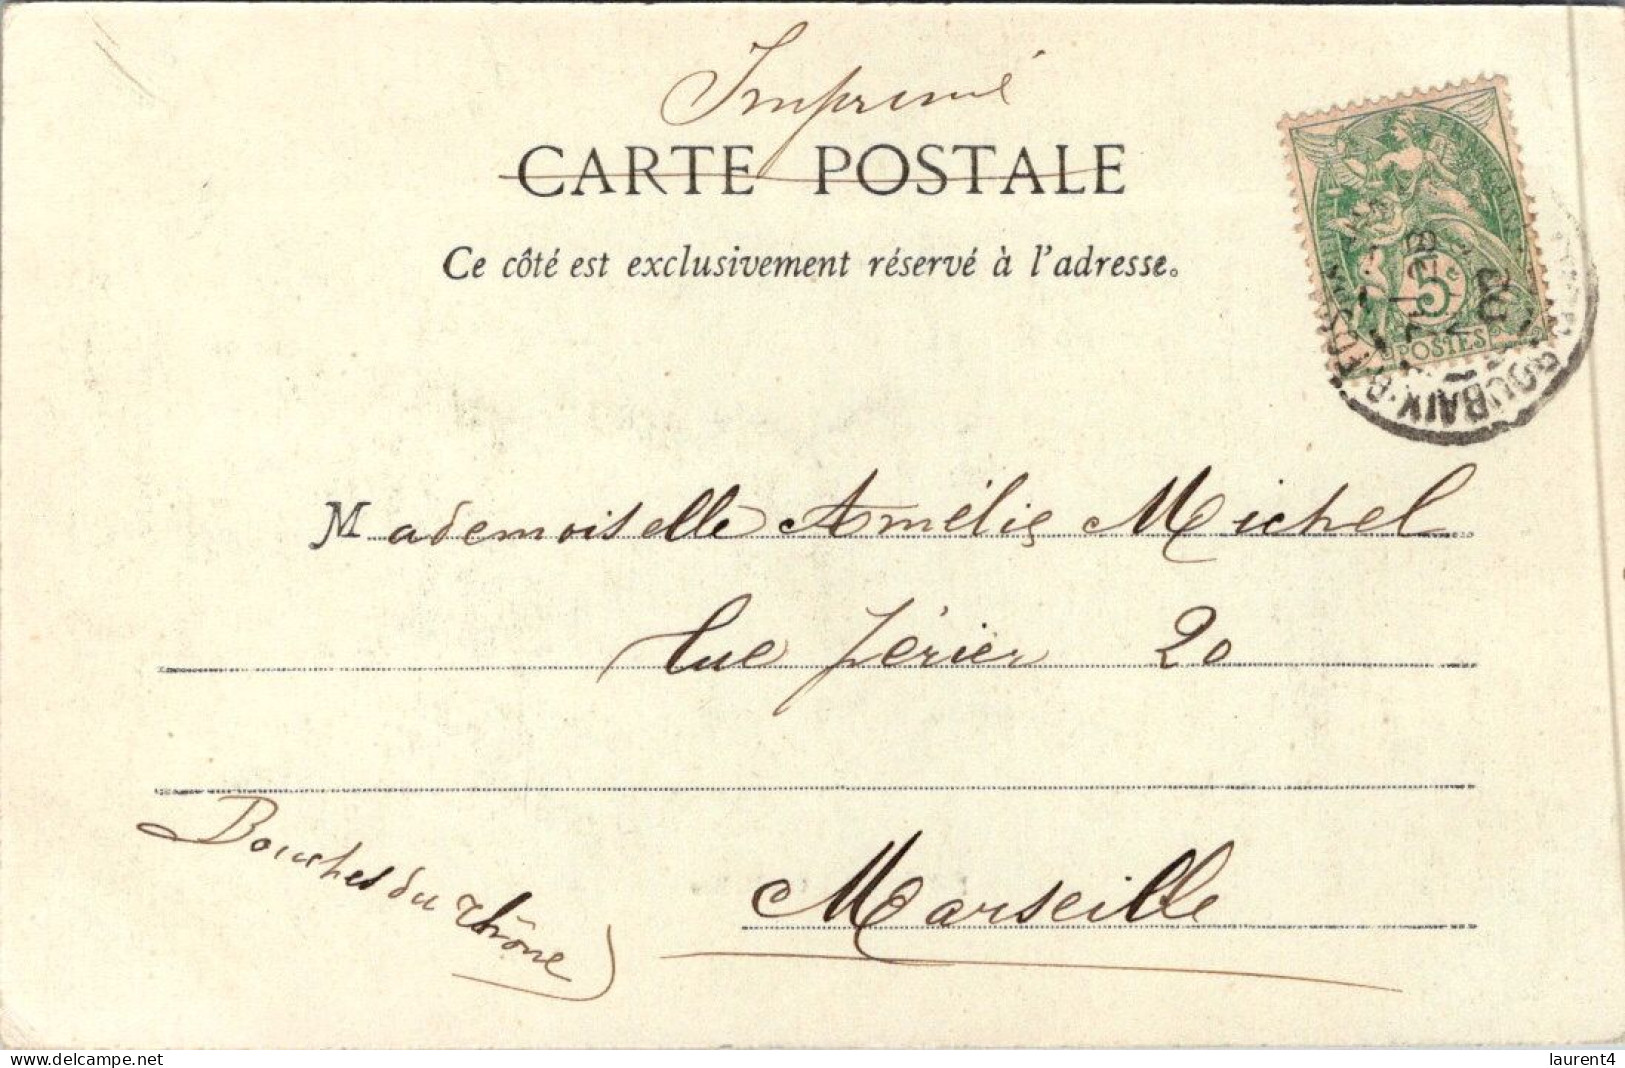 Imprimé
CARTE POSTALE
Ce côté est exclusivement réservé à l'adresse.
5c
POSTES
ROUBAIX
Mademoiselle Amélie Michel
Rue Périer 20
Bouches du Rhône
Marseille
www.delcampe.net
laurent4